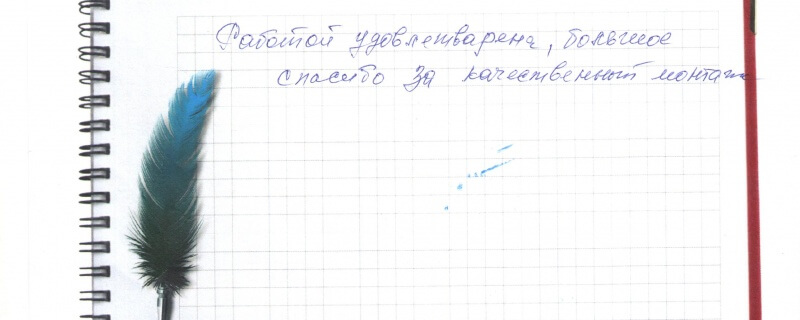 Работой удовлетварена, большое
спасибо за качественный монтаж